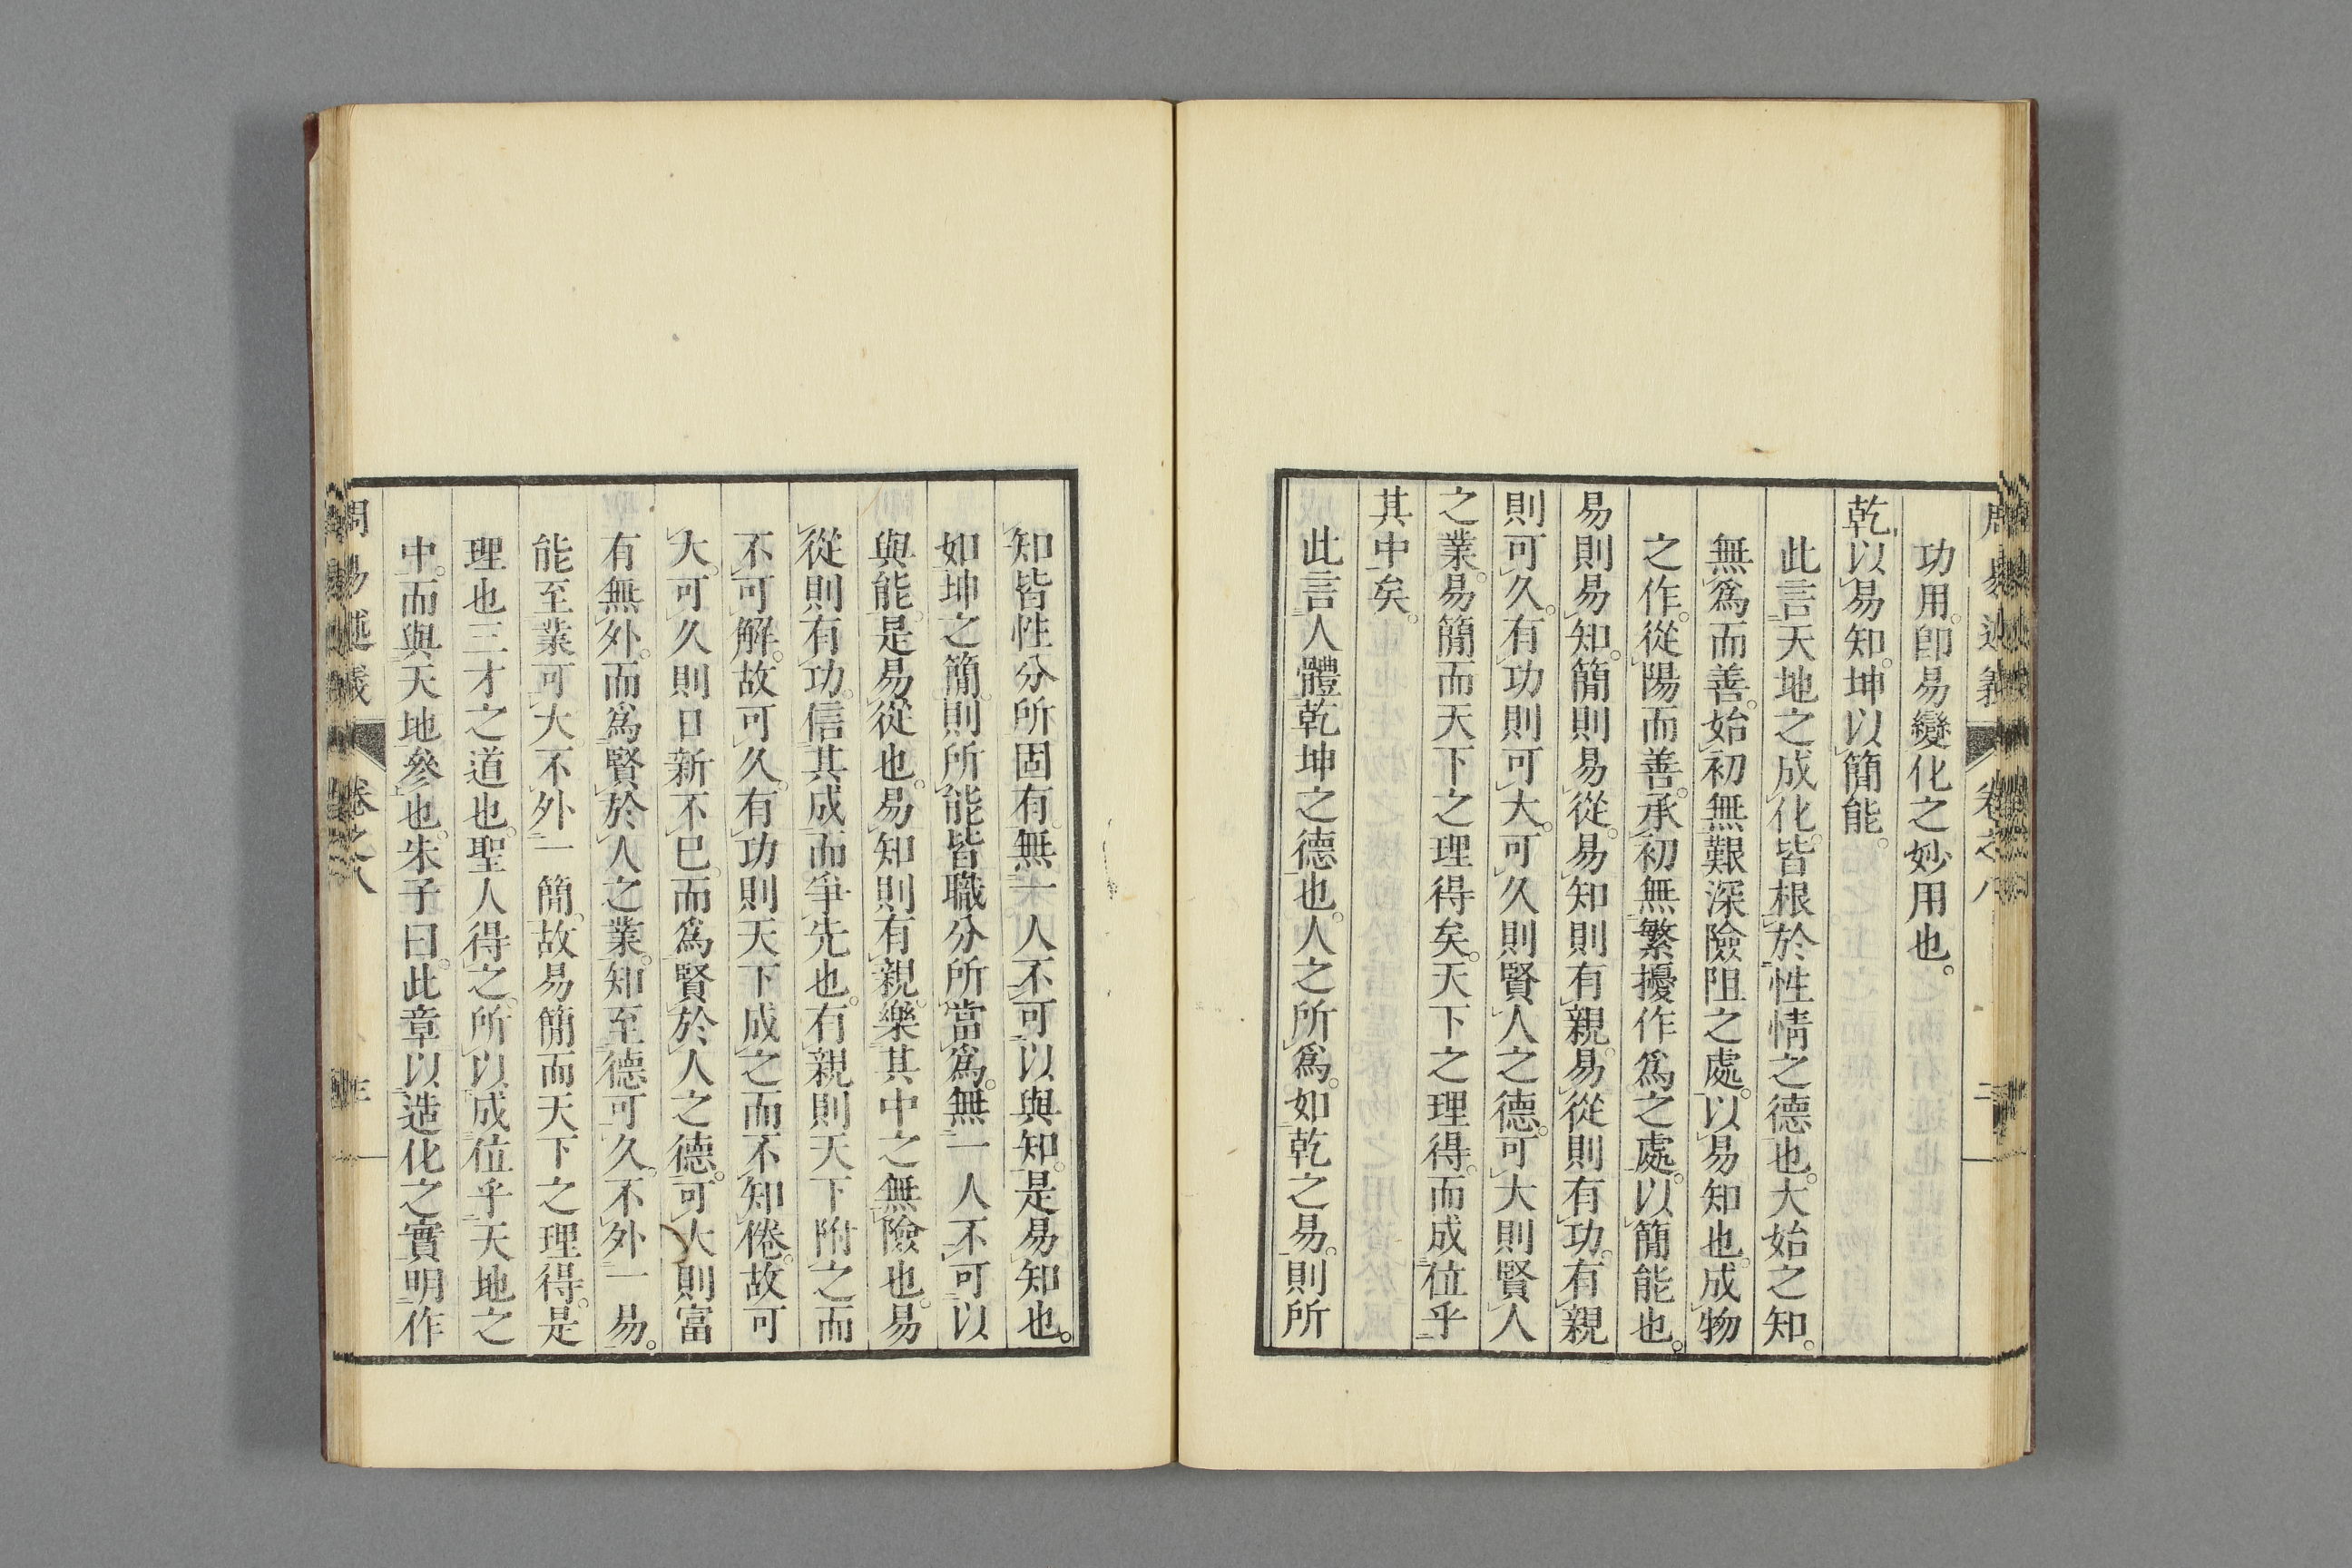 周易述義 卷之八 二
功用。卽易變化之妙用也。
乾以易知。坤以簡能。
此言天地之成化。皆根於性情之德也。大始之知。
無爲而善。始初無艱深險阻之處。以易知也。成物
之作。從陽而善。承初無繁擾作爲之處。以簡能也。
易則易知。簡則易從。易知則有親。易從則有功。有親
則可久。有功則可大。可久則賢人之德。可大則賢人
之業。易簡而天下之理得矣。天下之理得。而成位乎
其中矣。
此言人體乾坤之德也。人之所爲。如乾之易。則所
知皆性分所固有。無一人不可以與知。是易知也。
如坤之簡。則所能皆職分所當爲。無一人不可以
與能。是易從也。易知則有親。樂其中之無險也。易
從則有功。信其成而爭先也。有親則天下附之而
不可解。故可久。有功則天下成之而不知倦。故可
大。可久則日新不已。而爲賢於人之德。可大則富
有無外。而爲賢於人之業。知至德可久。不外一易。
能至業可大。不外一簡。故易簡而天下之理得。是
理也三才之道也。聖人得之。所以成位乎天地之
中。而與天地參也。朱子曰。此章以造化之實。明作
周易述義 卷之八 三